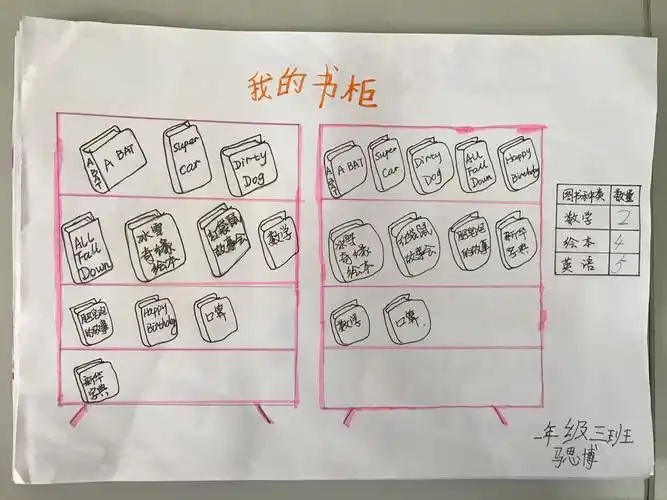 我的书柜
A BAT
A BAT
Super
Car
Dirty
Dog
ALL
Fall
Down
冰雪
奇缘
绘本
袋鼠
故事会
数学
的故事
Happy
Birthday
口算
新华
字典
A BAT
A BAT
Super
Car
Dirty
Dog
ALL
Fall
Down
Happy
Birthday
冰雪
奇缘
绘本
袋鼠
故事会
的故事
新华
字典
数学
口算.
图书种类 数量
数学 2
绘本 4
英语 5
一年级三班
马思博